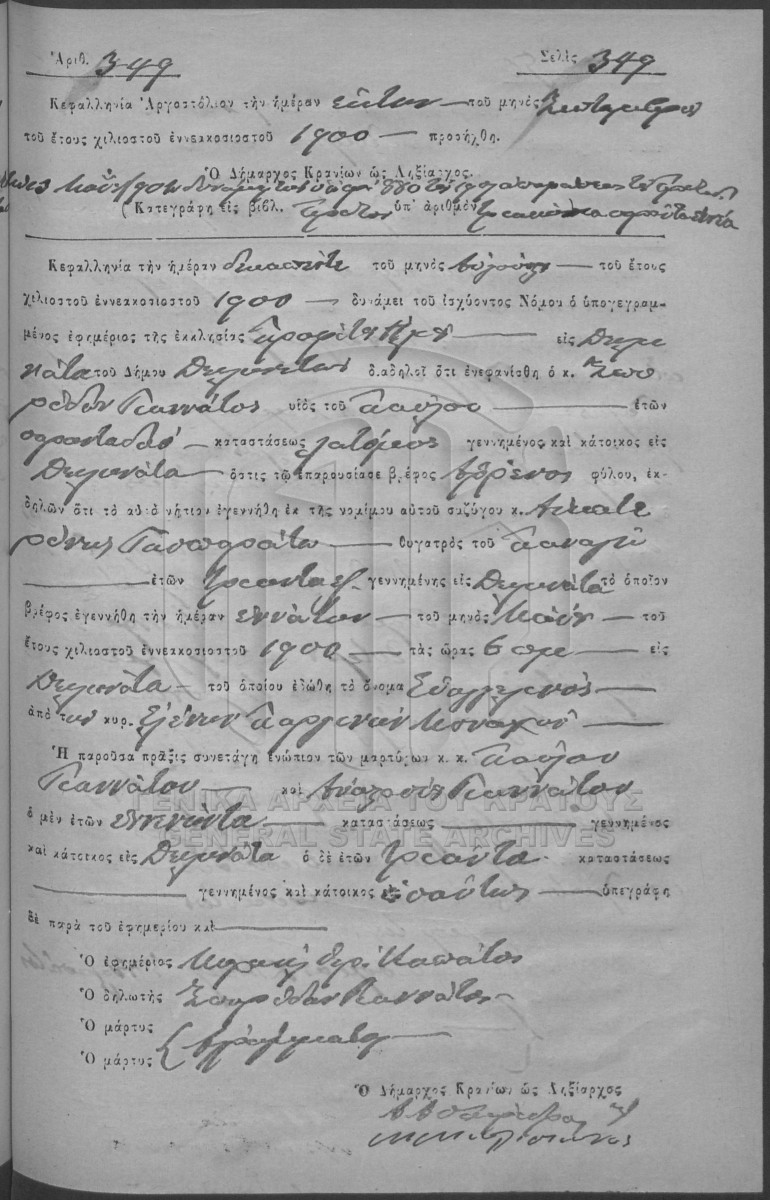 Ἀριθ. 349 Σελὶς 349
Κεφαλληνία Ἀργοστόλιον τὴν ἡμέραν ἕκτην τοῦ μηνὸς Σεπτεμβρίου
τοῦ ἔτους χιλιοστοῦ ἐννεακοσιοστοῦ 1900 προσήχθη.
Ὁ Δήμαρχος Κρανίων ὡς Ληξίαρχος.
(Κατεγράφη εἰς βιβλ. πρῶτον ὑπ' ἀριθμὸν τριακόσια
Κεφαλληνία τὴν ἡμέραν δεκαπέντε τοῦ μηνὸς Αὐγούστου τοῦ ἔτους
χιλιοστοῦ ἐννεακοσιοστοῦ 1900 δυνάμει τοῦ ἰσχύοντος Νόμου ὁ ὑπογεγραμ-
μένος ἐφημέριος τῆς ἐκκλησίας Προφήτου Ἠλιοῦ εἰς Διλι
νάτα τοῦ Δήμου διαδηλοῖ ὅτι ἐνεφανίσθη ὁ κ. Σπυ
ρίδων Γιαννάτος υἱὸς τοῦ Παύλου ἐτῶν
καταστάσεως λατόμος γεννημένος καὶ κάτοικος εἰς
Διλινάτα ὅστις τῷ ἐπαρουσίασε βρέφος ἄρρενος φύλου, ἐκ-
δηλῶν ὅτι τὸ αὐτὸ νήπιον ἐγεννήθη ἐκ τῆς νομίμου αὐτοῦ συζύγου κ. Αἰκατε
ρίνης θυγατρὸς τοῦ Παναγῆ
ἐτῶν τριάντα ἓξ γεννημένης εἰς Διλινάτα τὸ ὁποῖον
βρέφος ἐγεννήθη τὴν ἡμέραν ἐννάτην τοῦ μηνὸς Μαΐου τοῦ
ἔτους χιλιοστοῦ ἐννεακοσιοστοῦ 1900 τὰς ὥρας 6 πμ εἰς
Διλινάτα τοῦ ὁποίου ἐδώθη τὸ ὄνομα Εὐαγγελινός
ἀπὸ τὴν κυρ. Ἑλένην
Ἡ παροῦσα πρᾶξις συνετάγη ἐνώπιον τῶν μαρτύρων κ. κ. Παύλου
Γιαννάτου καὶ Γιαννάτου
ὁ μὲν ἐτῶν ἐννενήντα καταστάσεως γεννημένος
καὶ κάτοικος εἰς Διλινάτα ὁ δὲ ἐτῶν τριάντα καταστάσεως
γεννημένος καὶ κάτοικος ὡσαύτως ὑπεγράφη
δὲ παρὰ τοῦ ἐφημερίου καὶ
Ὁ ἐφημέριος
Ὁ δηλωτὴς Σπυρίδων Γιαννάτος
Ὁ μάρτυς
Ὁ μάρτυς ἀγράμματοι
Ὁ Δήμαρχος Κρανίων ὡς Ληξίαρχος
ΓΕΝΙΚΑ ΑΡΧΕΙΑ ΤΟΥ ΚΡΑΤΟΥΣ
GENERAL STATE ARCHIVES